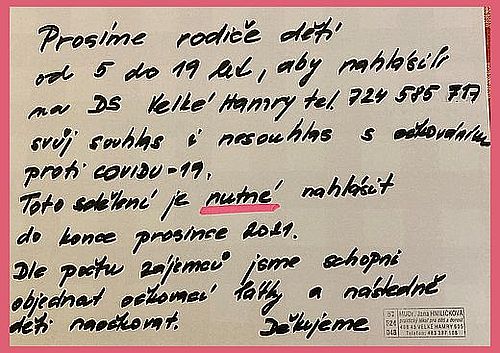 Prosíme rodiče dětí
od 5 do 19 let, aby nahlásili
na DS Velké Hamry tel. 724 585 717
svůj souhlas i nesouhlas s očkováním
proti covidu-19.
Toto sdělení je nutné nahlásit
do konce prosince 2021.
Dle počtu zájemců jsme schopni
objednat očkovací látky a následně
děti naočkovat. Děkujeme
MUDr. Jana HNILIČKOVÁ
praktický lékař pro děti a dorost
468 45 VELKÉ HAMRY 505
Telefon: 483 387 108